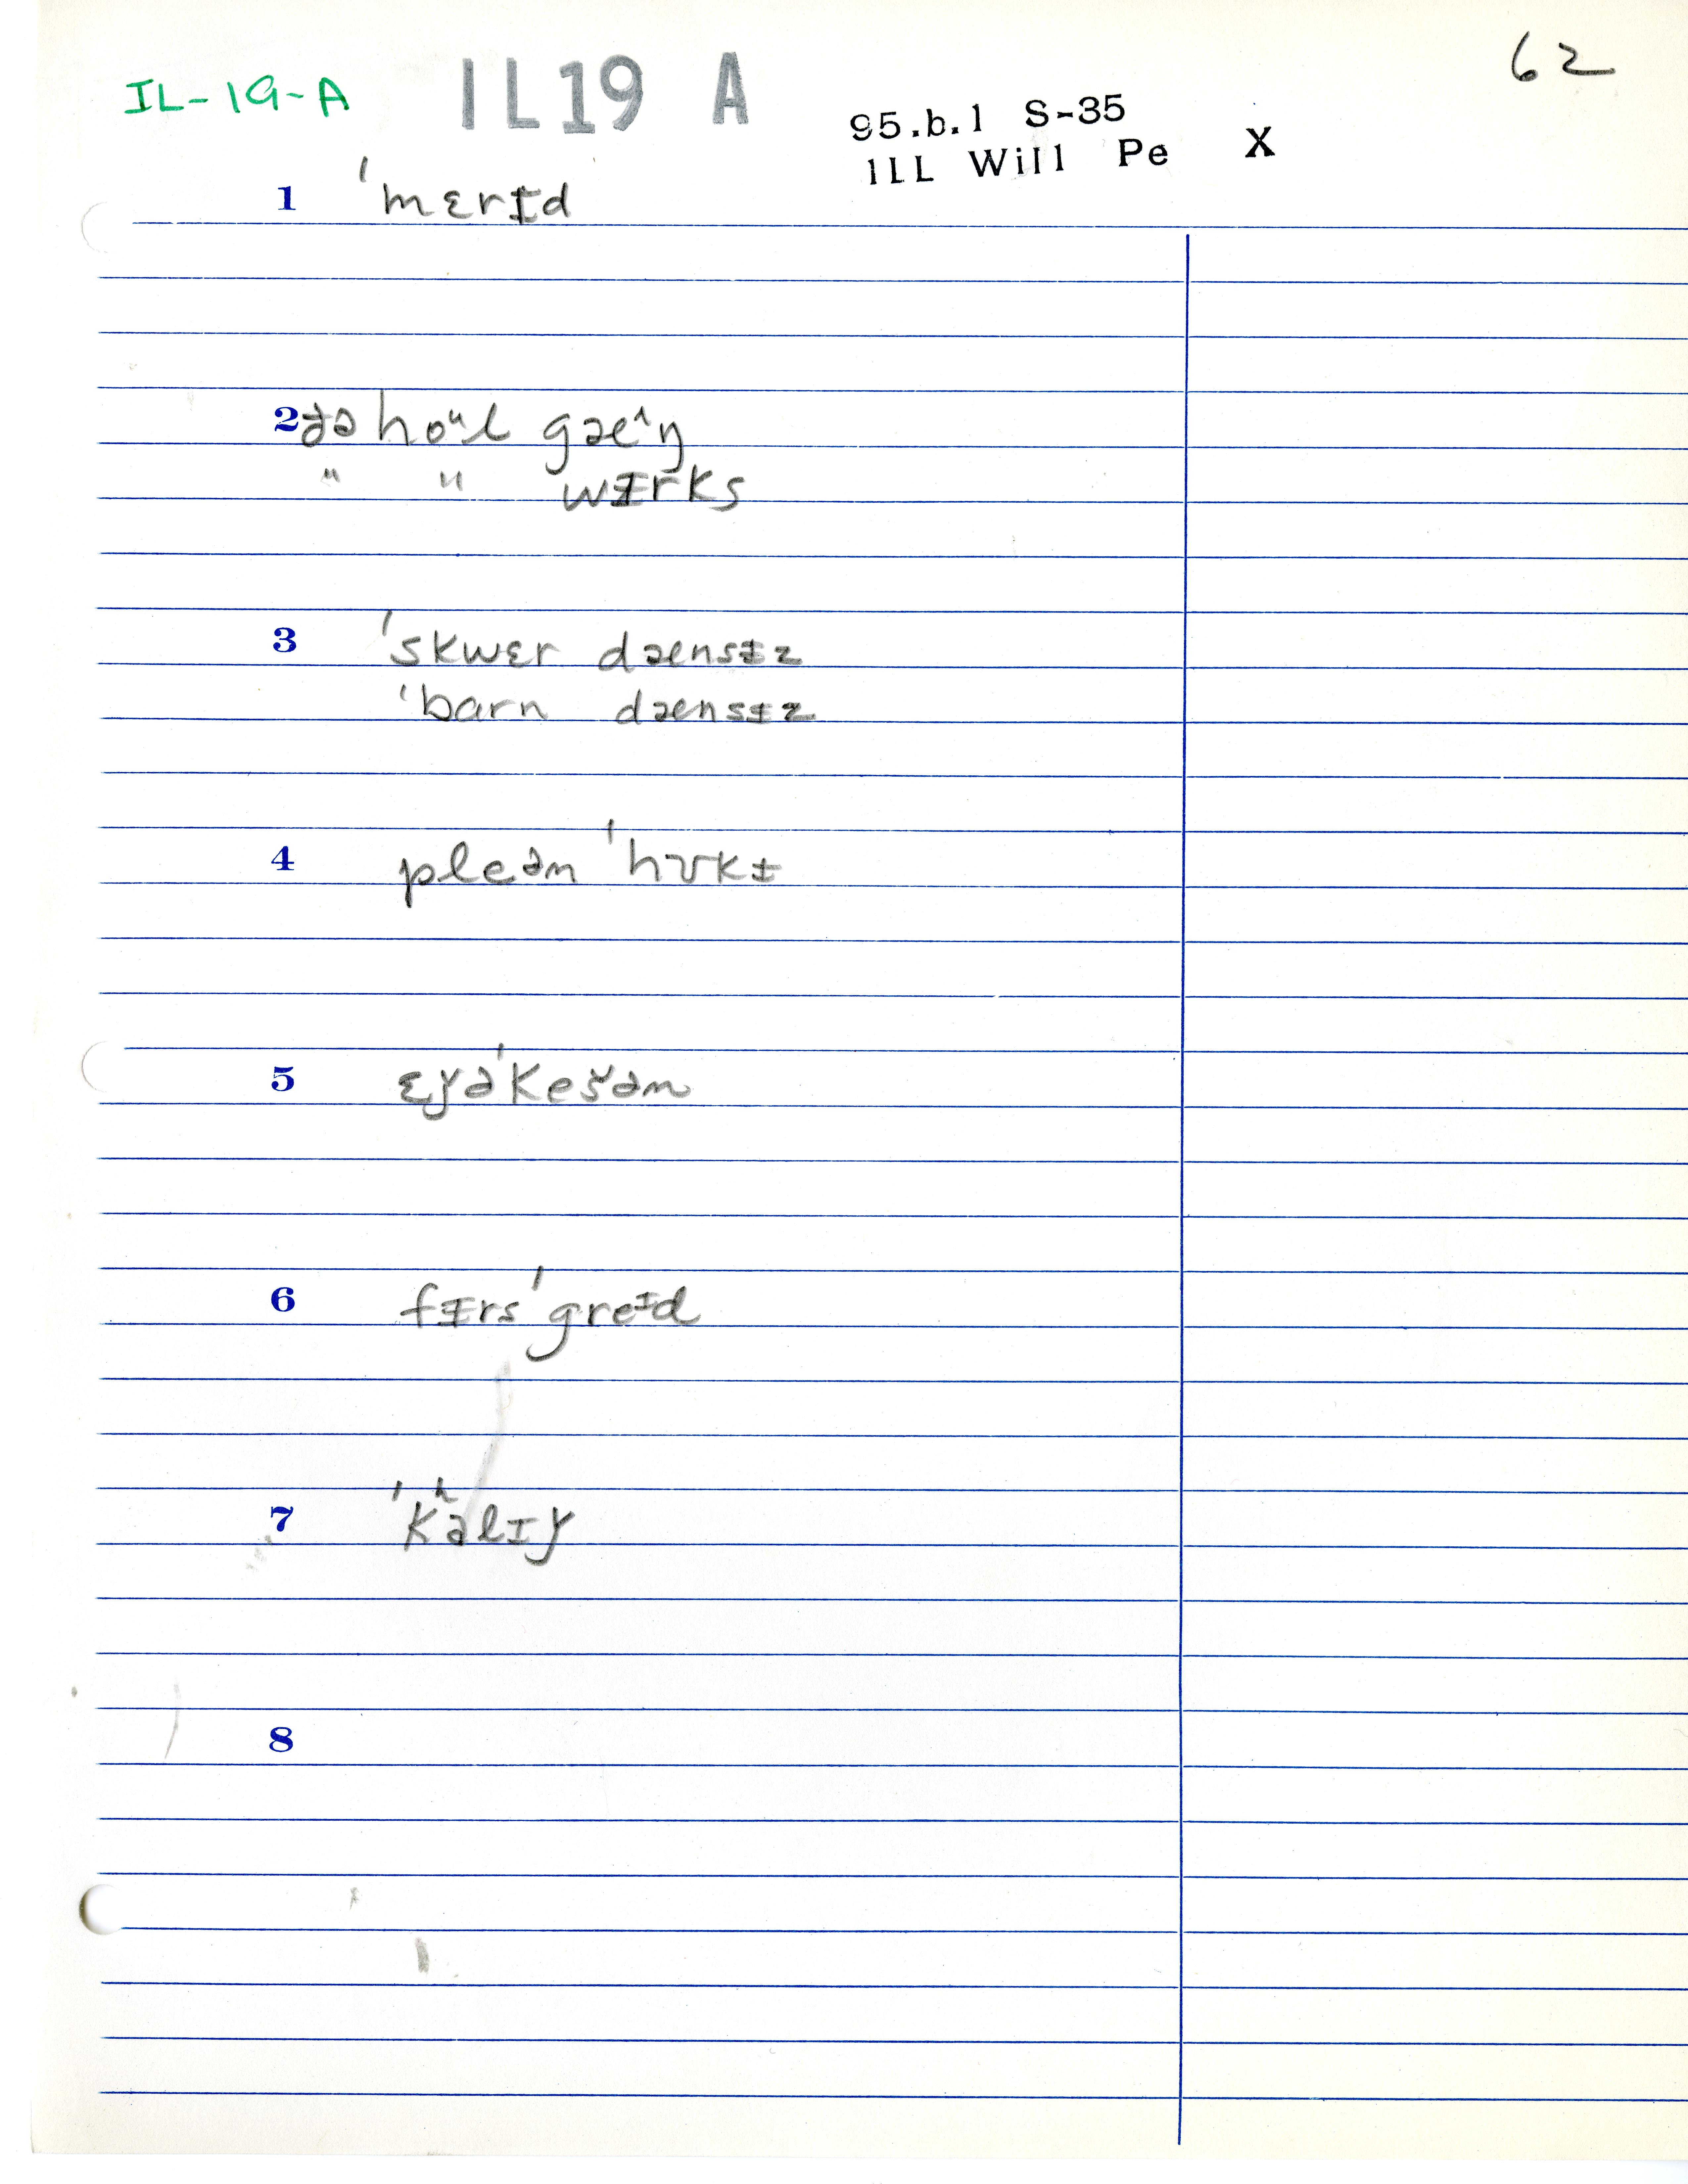 IL-19-A IL19 A 62
95.b.1 S-35
ILL Will Pe X
1 ˈmɛrɨd
2 ðə hoᵘl gæ^ŋ
" " wɨrks
3 ˈskwɛr dænsɨz
ˈbarn dænsɨz
4 pleən ˈhʊkɨ
5 ɛǰəˈkešən
6 fɨrsˈgreᶤd
7 ˈkʰalɪǰ
8